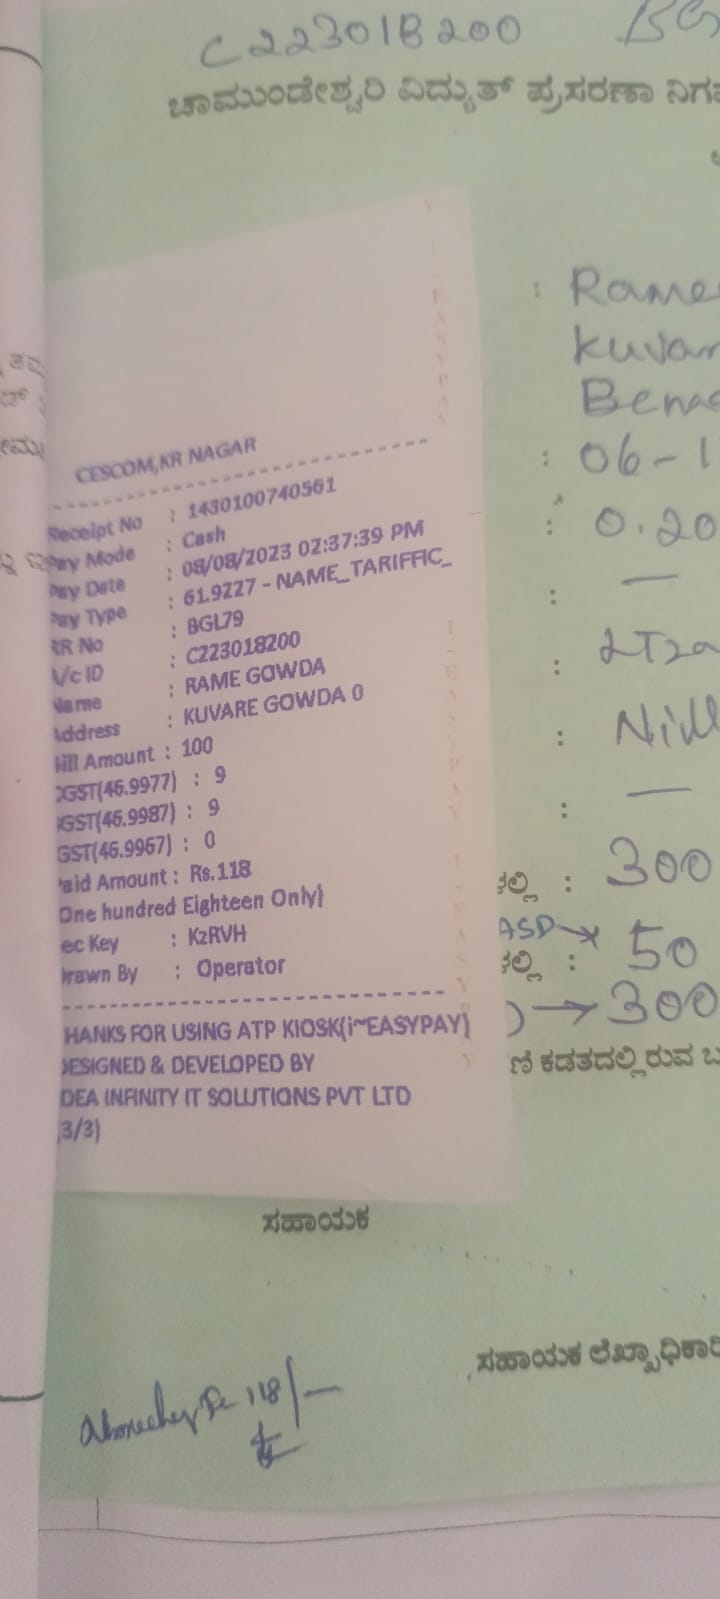 C223018200
ಚಾಮುಂಡೇಶ್ವರಿ ವಿದ್ಯುತ್ ಪ್ರಸರಣಾ ನಿಗಮ
: Rame
Kuvar
Bena
: 06-1
: 0.20
: —
: LT2a
: Nill
: —
: 300
ASD→
: 50
→ 300
ಕಡತದಲ್ಲಿರುವ
CESCOM,KR NAGAR
Receipt No : 1430100740561
Pay Mode : Cash
Pay Date : 08/08/2023 02:37:39 PM
Pay Type : 61.9227 - NAME_TARIFFIC_
RR No : BGL79
A/c ID : C223018200
Name : RAME GOWDA
Address : KUVARE GOWDA 0
Bill Amount : 100
CGST(46.9977) : 9
SGST(46.9987) : 9
GST(46.9967) : 0
Paid Amount : Rs.118
One hundred Eighteen Only)
ec Key : KzRVH
Drawn By : Operator
HANKS FOR USING ATP KIOSK(i~EASYPAY)
DESIGNED & DEVELOPED BY
IDEA INFINITY IT SOLUTIONS PVT LTD
(3/3)
ಸಹಾಯಕ
ಸಹಾಯಕ ಲೆಖ್ಖಾಧಿಕಾರಿ
118/-